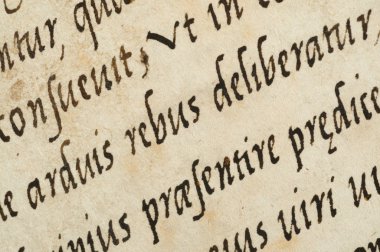 ntur, qui
consueuit, Vt in
arduis rebus deliberatur,
præsentire prędice
uiri